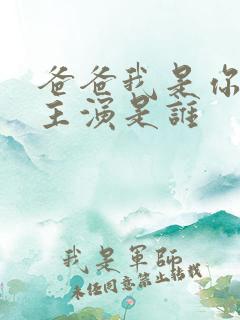 爸爸我是你
主演是誰
我是軍師
未經同意禁止轉載